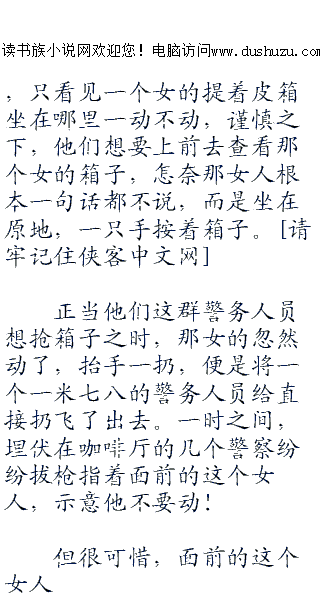 读书族小说网欢迎您！电脑访问www.dushuzu.com
，只看见一个女的提着皮箱
坐在哪里一动不动，谨慎之
下，他们想要上前去查看那
个女的箱子，怎奈那女人根
本一句话都不说，而是坐在
原地，一只手按着箱子。[请
牢记住侠客中文网]
正当他们这群警务人员
想抢箱子之时，那女的忽然
动了，抬手一扔，便是将一
个一米七八的警务人员给直
接扔飞了出去。一时之间，
埋伏在咖啡厅的几个警察纷
纷拔枪指着面前的这个女
人，示意他不要动！
但很可惜，面前的这个
女人